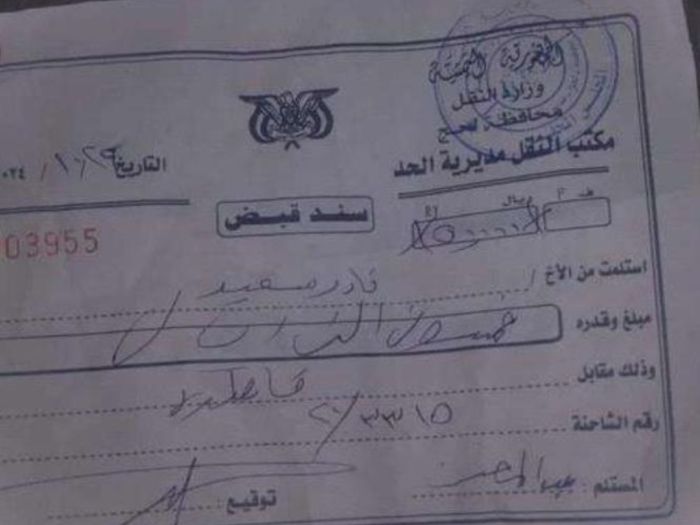 الجمهورية اليمنية
وزارة النقل
محافظة لحج
مكتب النقل مديرية الحد
التاريخ ٢٩ / ١٠ / ٢٠٢٤
سند قبض
ف P ريال RI
03955
استلمت من الأخ / نادر سعيد
مبلغ وقدره خمسون الف ريال
وذلك مقابل قاطرة
رقم الشاحنة ٣٣١٥ / ٢
المستلم : عبد
توقيع :